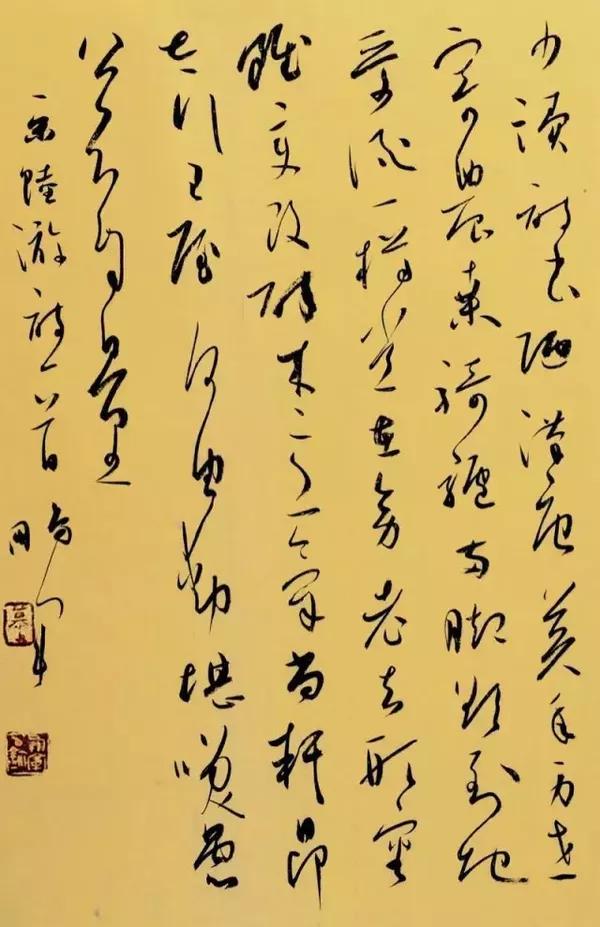 少讀詩書陋漢唐莫年身世
寄農桑騎驢兩脚欲到地
愛酒一樽常在旁老去形容
雖變改醉來意氣尚軒昂
太行王屋何由動堪笑愚
公不自量
陸游詩一首